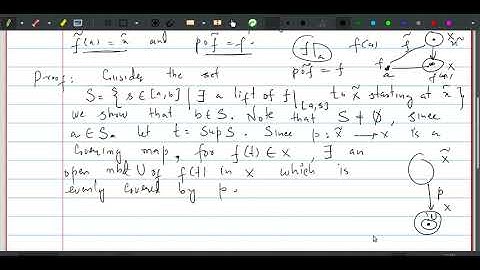 f̃(a) = x̃ and p∘f̃ = f.
f|a f(a) f̃ X̃ x̃
p∘f̃ = f f a X f(a)
Proof: Consider the set
S = { s ∈ [a,b] | ∃ a lift of f|[a,s] to X̃ starting at x̃ }
we show that b ∈ S. Note that S ≠ Ø, since
a ∈ S. let t = Sup S. Since p: X̃ → X is a
Covering map, for f(t) ∈ X, ∃ an
open nbd U of f(t) in X which is
evenly covered by p.
X̃
p
X
U